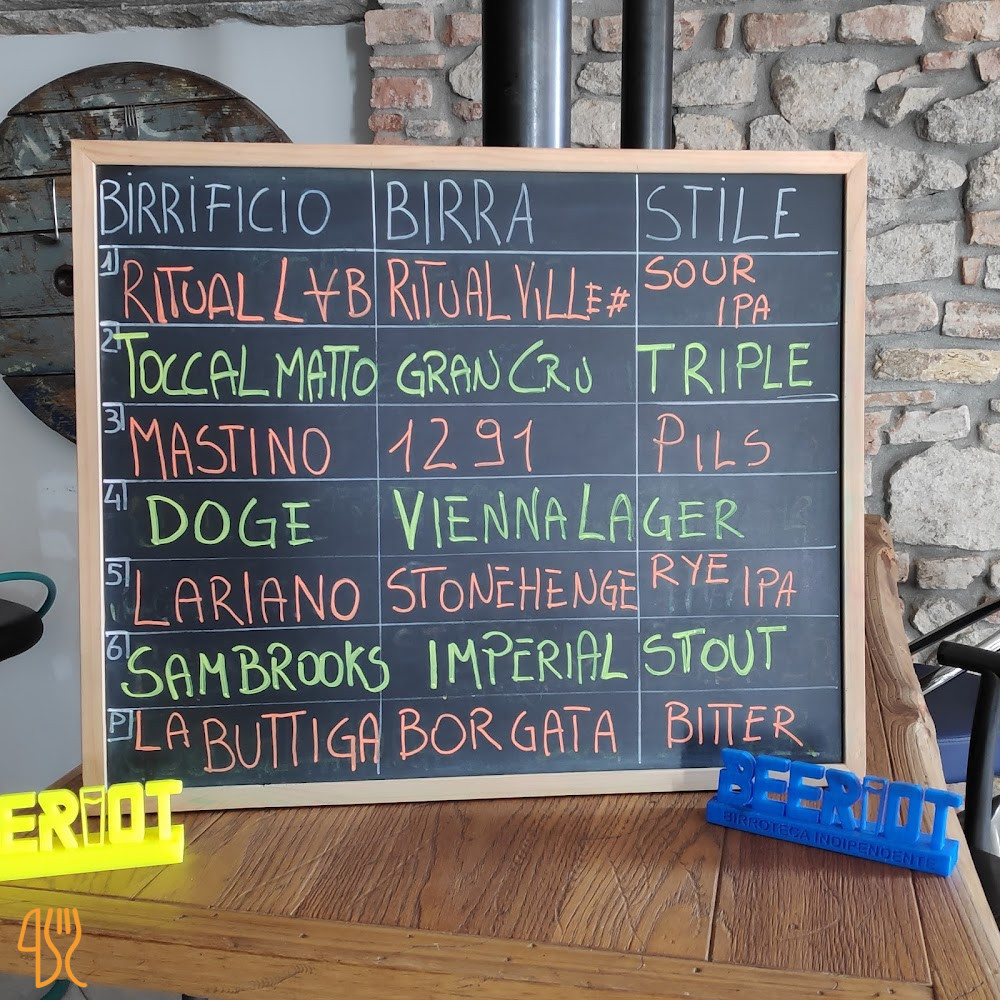 BIRRIFICIO BIRRA STILE
1 RITUAL LAB RITUAL VILLE# SOUR IPA
2 TOCCALMATTO GRAN CRU TRIPLE
3 MASTINO 1291 PILS
4 DOGE VIENNA LAGER
5 LARIANO STONEHENGE RYE IPA
6 SAMBROOKS IMPERIAL STOUT
P LA BUTTIGA BORGATA BITTER
ERiOT
BEERiOT
BIRROTECA INDIPENDENTE